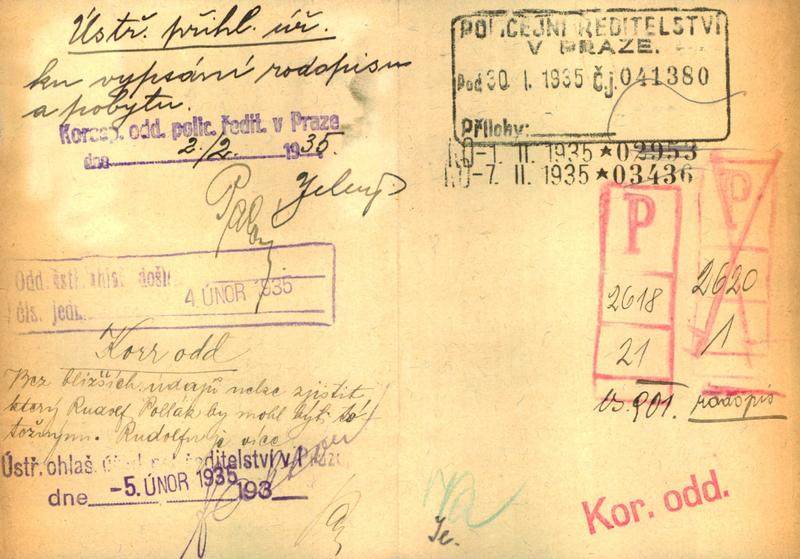 Ústř. přihl. úř.
ku vypsání rodopisu
a pobytu.
Koresp. odd. polic. ředit. v Praze
dne 2./2. 1935.
Odd. ústř. ohlaš. došlo
4. ÚNOR 1935
čís. jedn.
Korr odd
Bez bližších údajů nelze zjistit
který Rudolf Pollák by mohl býti to
tožným. Rudolfů je více
Ústř. ohlaš. ředitelství v Praze
dne -5. ÚNOR 1935 193
POLICEJNÍ ŘEDITELSTVÍ
V PRAZE.
Pod 30. I. 1935 Čj. 041380
Přílohy:
-1. II. 1935 *02953
-7. II. 1935 *03436
P
2618
21
P
2620
1
901. rodopis
Kor. odd.
Je.